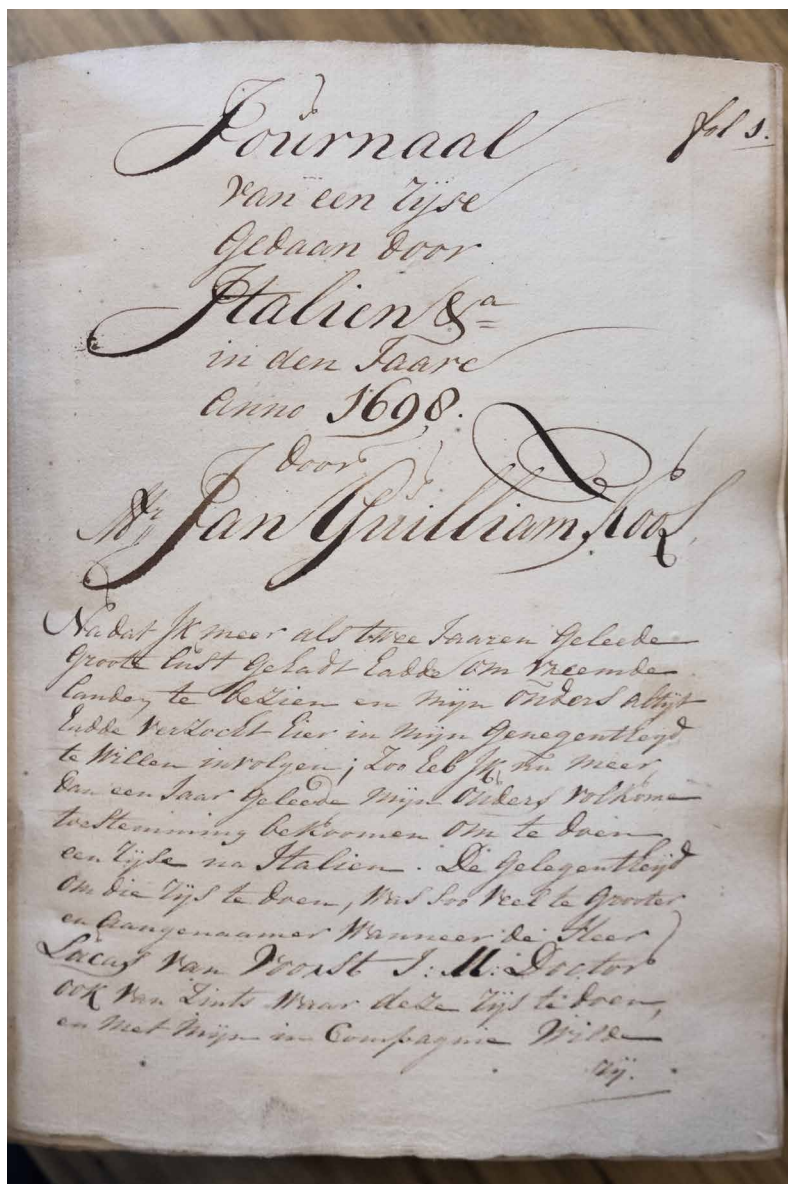 fol 1.
Journaal
van een rijse
Gedaan door
Italien &a
in den Jaare
Anno 1698.
door
Mr Jan Guilliam Kool
Nadat Ik meer als twee Jaaren Geleede
Groote lust gehadt hadde om vreemde
landen te bezien en mijn ouders altijt
hadde verzocht hier in mijn Genegentheyd
te willen involgen; Zoo heb Ik nu meer
dan een Jaar geleede mijn ouders volkome
toestemming bekoomen om te doen
een rijse na Italien. De gelegentheijd
om die rijs te doen, was soo veel te grooter
en aangenaamer wanneer de Heer
Lucas van Voorst I: M: Doctor
ook van zints waar deze rijs te doen,
en met mijn in Compagnie wilde
rij.